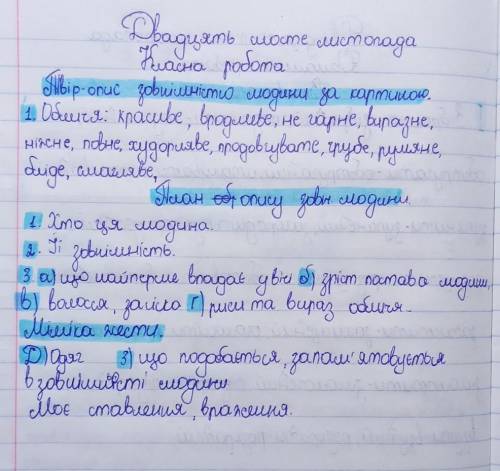 Двадцять шосте листопада
Класна робота
Твір-опис зовнішністю людини за картиною.
1. Обличчя: красиве, вродливе, не гарне, виразне,
ніжне, повне, худорляве, продовгувате, грубе, румяне,
бліде, смагляве,
План опису зовн людини
1. Хто ця людина.
2. Її зовнішність.
3 а) що найперше впадає у вічі б) зріст постава людини,
в) волосся, зачіска г) риси та вираз обличя.
Міміка жести.
Д) Одяг з) що подобається, запам'ятовується
в зовнішності людини
Моє ставлення, враження.